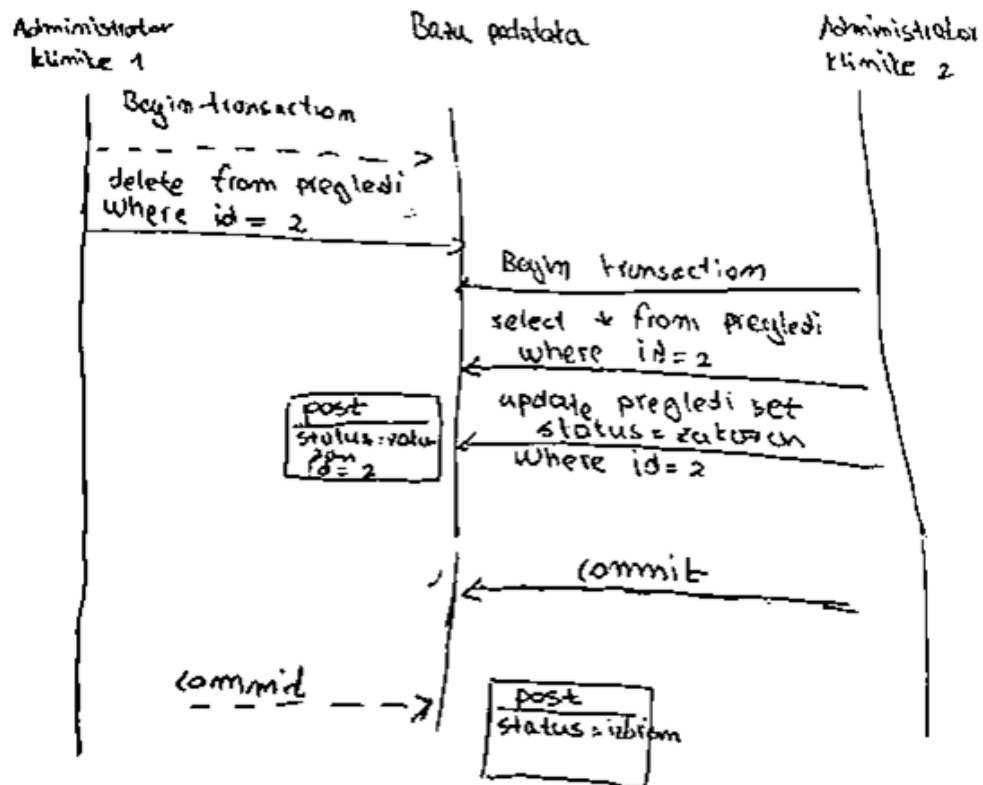 Administrator
klinike 1
Baza podataka
Administrator
klinike 2
Begin transaction
delete from pregledi
where id = 2
Begin transaction
select * from pregledi
where id=2
update pregledi set
status = zakazan
where id = 2
post
id = 2
commit
commit
post